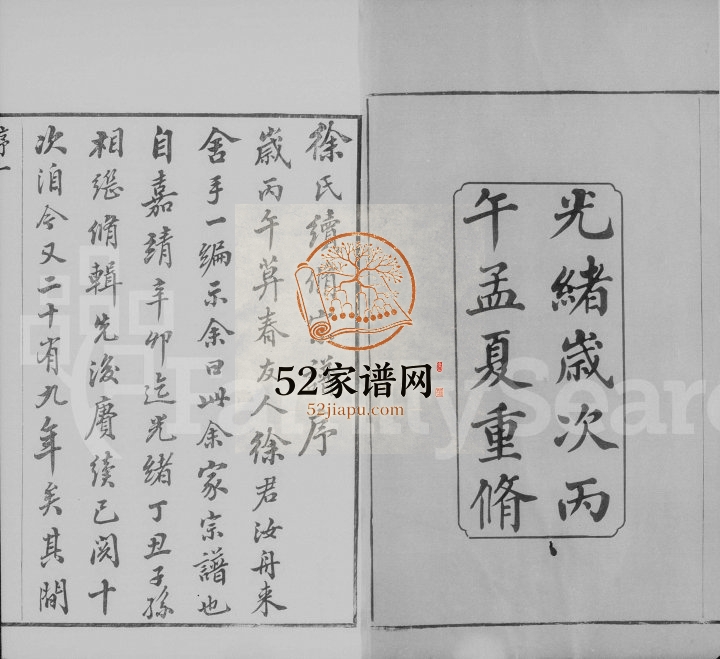 光緒歲次丙
午孟夏重脩
徐氏續脩宗譜序
歲丙午莫春友人徐君汝舟来
舍手一編示余曰此余家宗譜也
自嘉靖辛卯迄光緒丁丑子孫
相繼脩輯先後賡續已閲十
次洎今又二十有九年矣其間
序一
52家谱网
52jiapu.com
FamilySearch